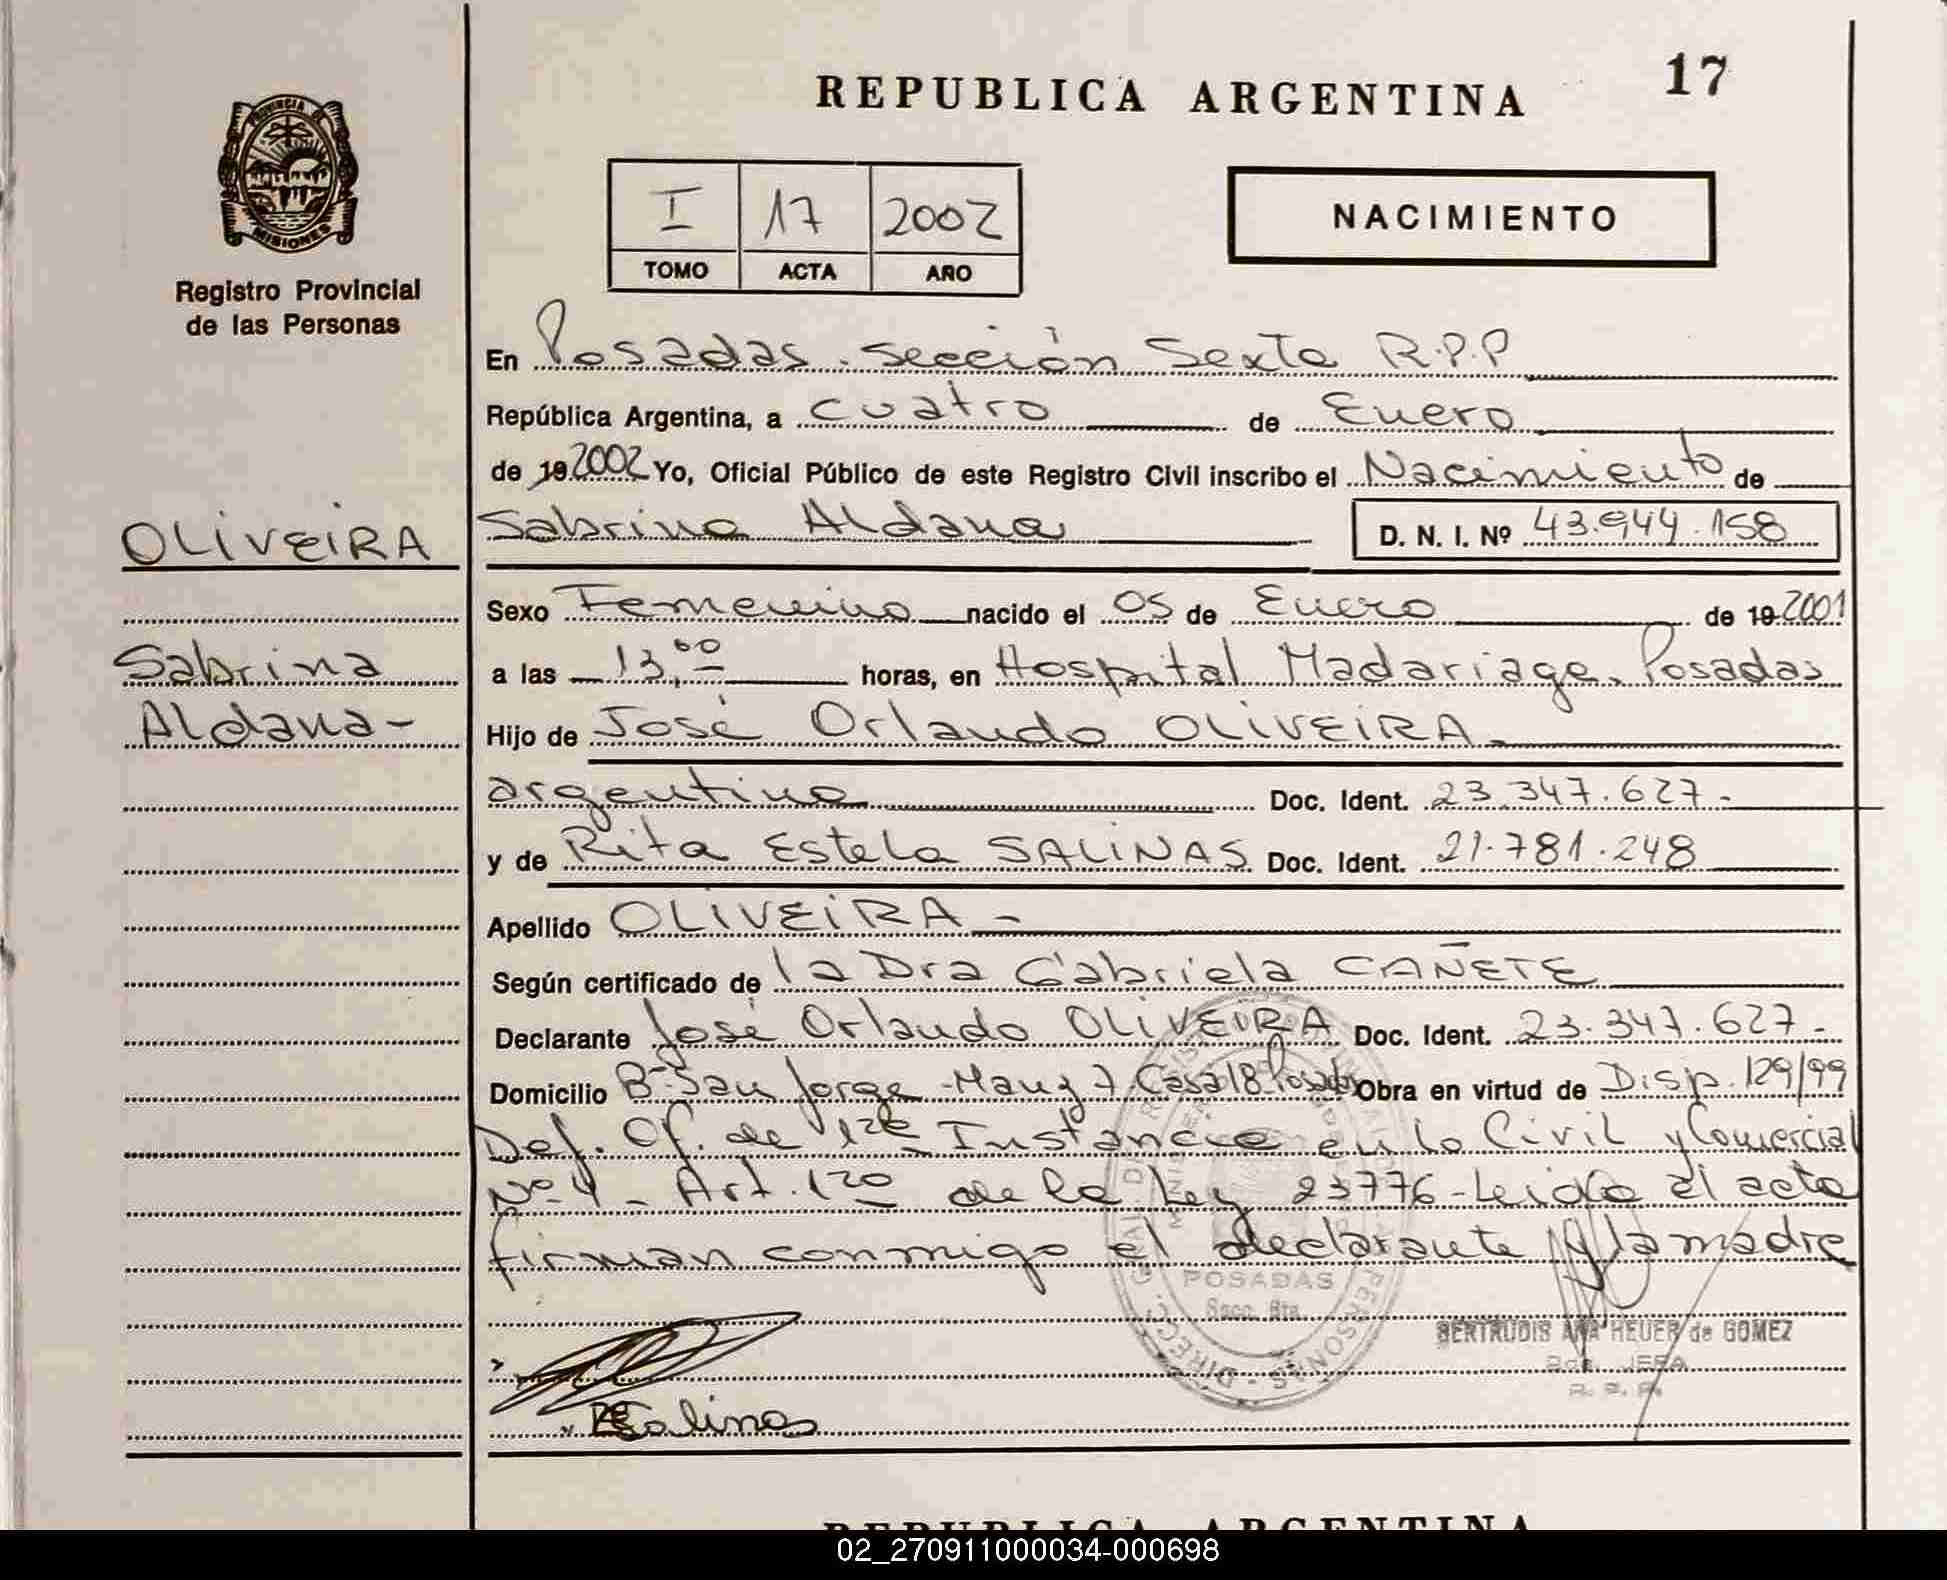 REPUBLICA ARGENTINA
17
PROVINCIA DE
MISIONES
Registro Provincial
de las Personas
I 17 2002
TOMO ACTA AÑO
NACIMIENTO
En Posadas. Sección Sexta R.P.P
República Argentina, a cuatro de Enero
de 19 2002 Yo, Oficial Público de este Registro Civil inscribo el Nacimiento de
OLIVEIRA
Sabrina Aldana D. N. I. Nº 43.944.158
Sexo Femenino nacido el 05 de Enero de 19 2001
Sabrina
Aldana-
a las 13,00 horas, en Hospital Madariaga. Posadas
Hijo de José Orlando OLIVEIRA.
argentino Doc. Ident. 23.347.627-
y de Rita Estela SALINAS Doc. Ident. 21.781.248
Apellido OLIVEIRA -
Según certificado de la Dra Gabriela CAÑETE
Declarante José Orlando OLIVEIRA Doc. Ident. 23.347.627-
Domicilio Bº San Jorge-Manz 7 Casa 18 Posadas Obra en virtud de Disp. 129/99
Def. Of. de 1ra Instancia en lo Civil y Comercial
Nº 4 - Art. 12º de la Ley 23776-Leida el acta
firman conmigo el declarante y la madre
POSADAS
Secc. 6ta.
GERTRUDIS ANA HEUER de GOMEZ
JEFA
R. P. P.
Salinas
REPUBLICA ARGENTINA
02_270911000034-000698